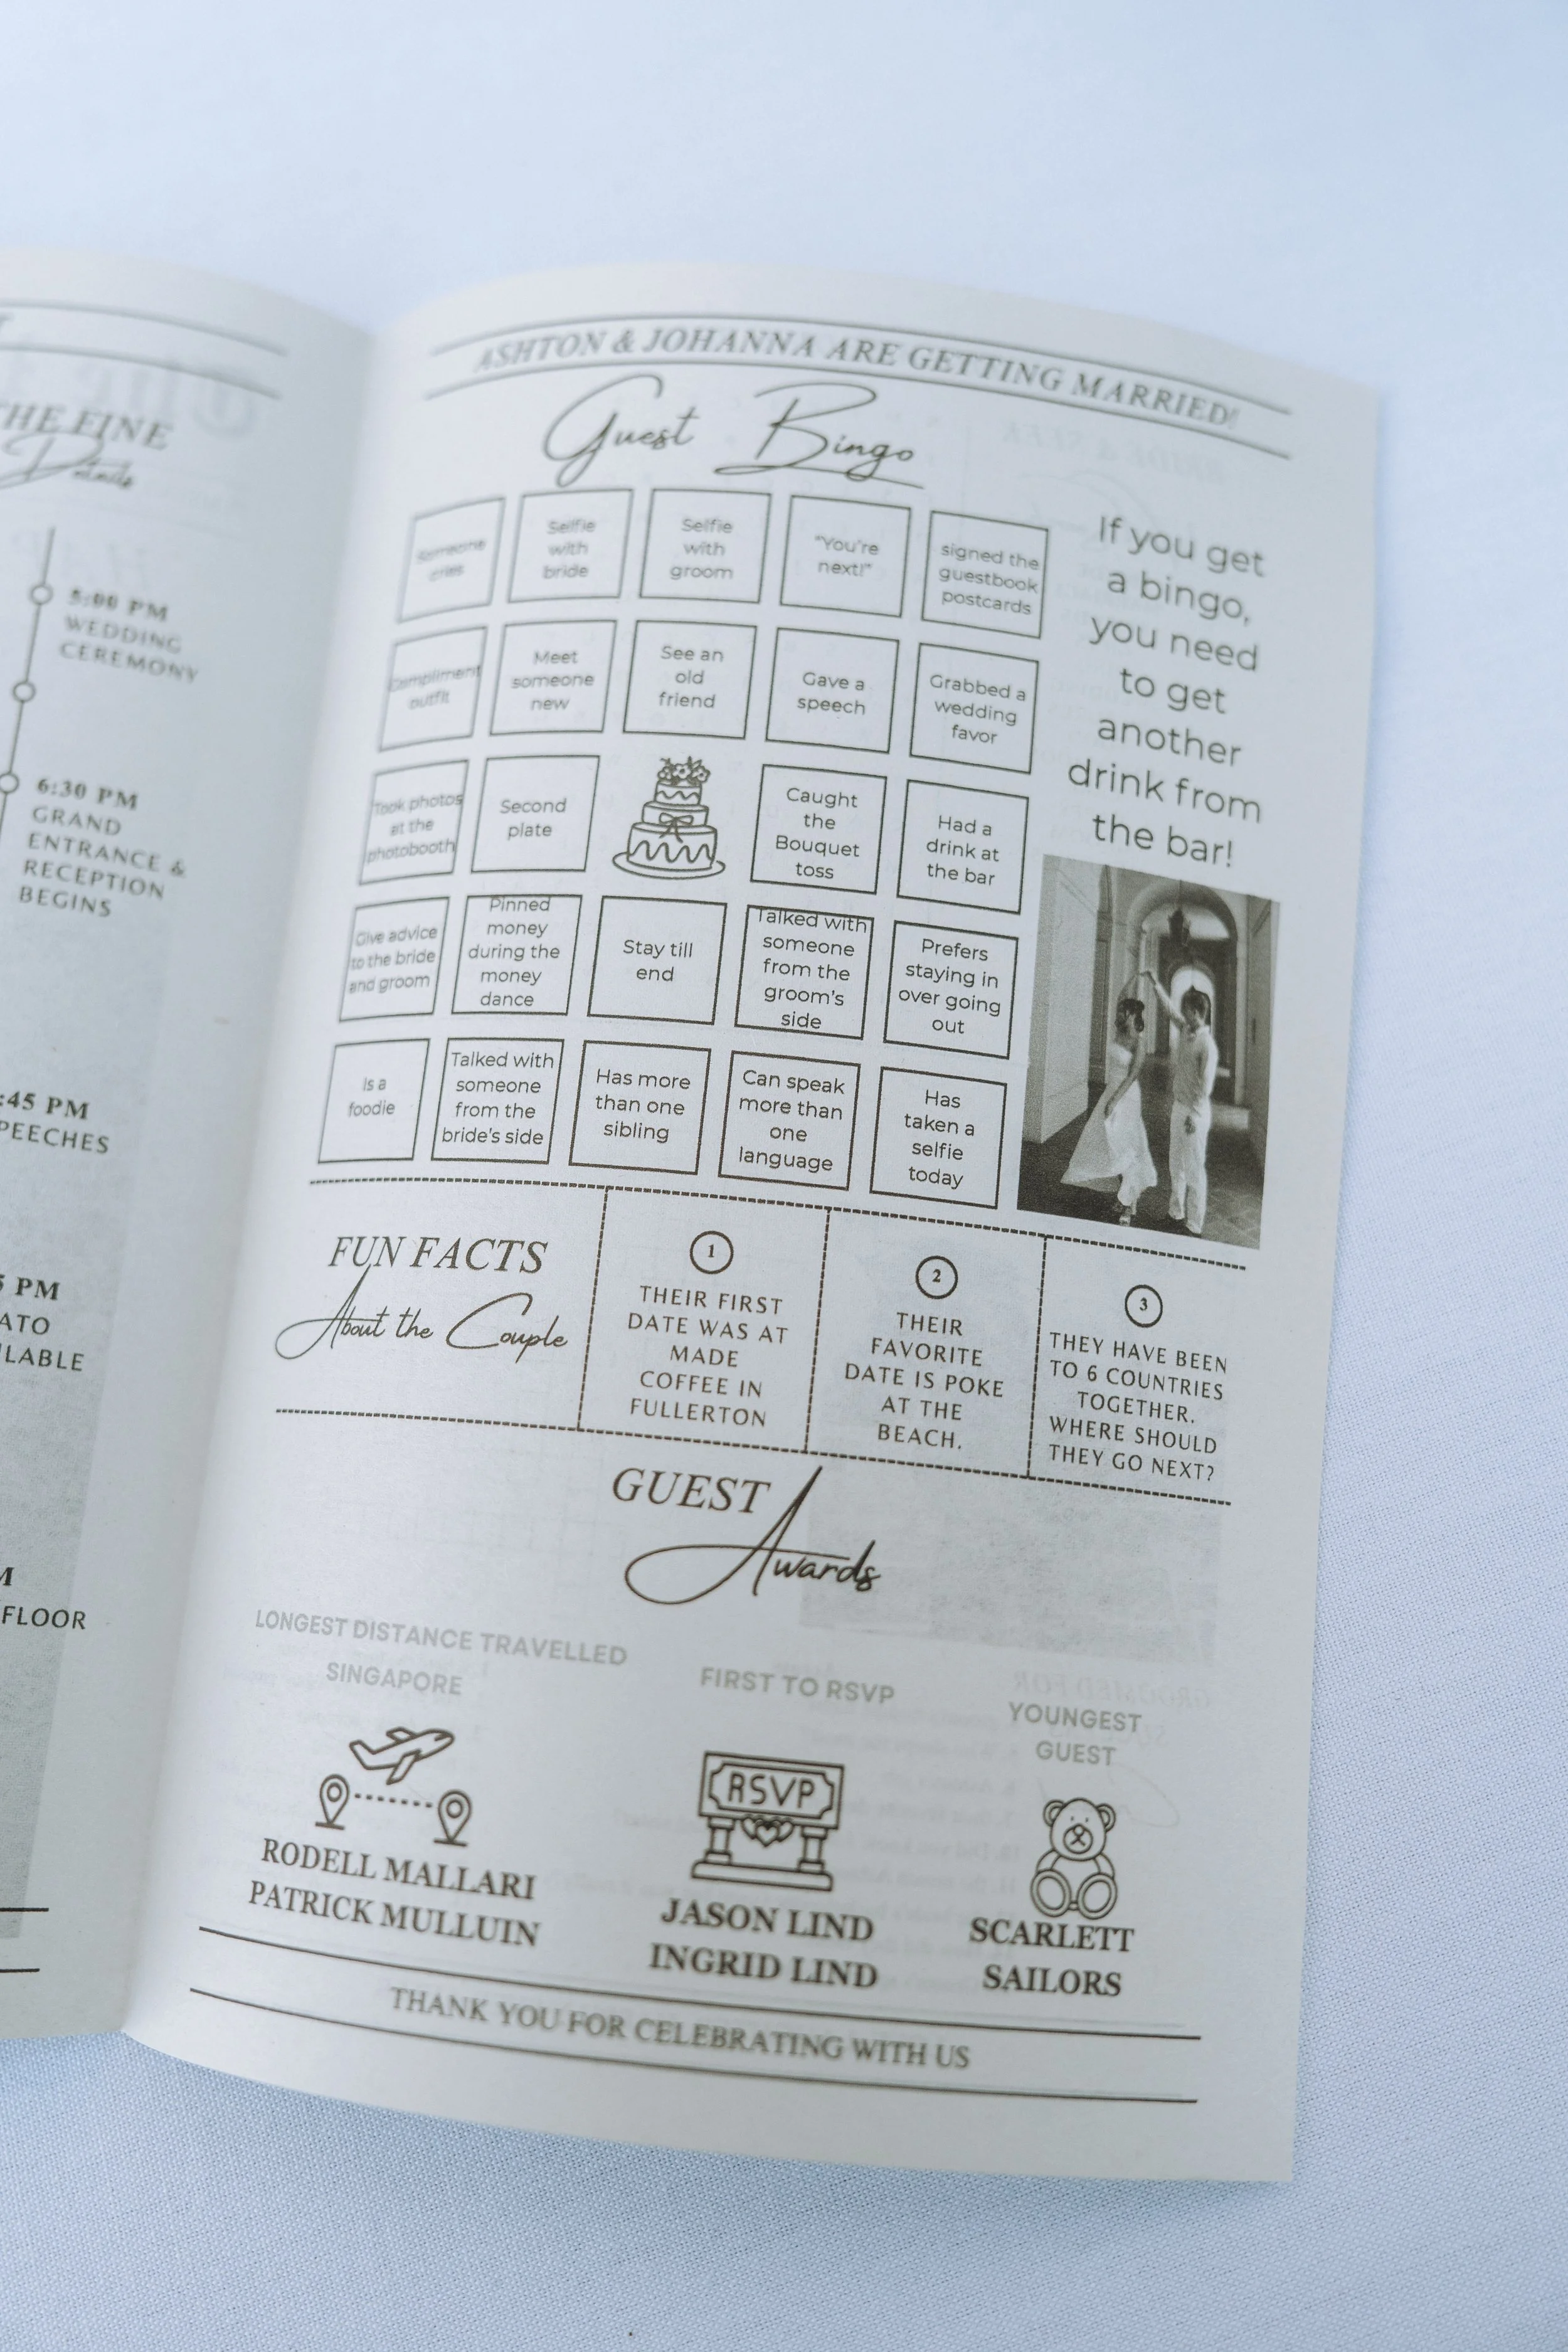 THE FINE
Details
5:00 PM
WEDDING
CEREMONY
6:30 PM
GRAND
ENTRANCE &
RECEPTION
BEGINS
:45 PM
PEECHES
5 PM
ATO
ILABLE
M
FLOOR
ASHTON & JOHANNA ARE GETTING MARRIED!
Guest Bingo
Someone
cries
Selfie
with
bride
Selfie
with
groom
"You're
next!"
signed the
guestbook
postcards
Compliment
outfit
Meet
someone
new
See an
old
friend
Gave a
speech
Grabbed a
wedding
favor
Took photos
at the
photobooth
Second
plate
Caught
the
Bouquet
toss
Had a
drink at
the bar
Give advice
to the bride
and groom
Pinned
money
during the
money
dance
Stay till
end
Talked with
someone
from the
groom's
side
Prefers
staying in
over going
out
Is a
foodie
Talked with
someone
from the
bride's side
Has more
than one
sibling
Can speak
more than
one
language
Has
taken a
selfie
today
If you get
a bingo,
you need
to get
another
drink from
the bar!
FUN FACTS
About the Couple
1
THEIR FIRST
DATE WAS AT
MADE
COFFEE IN
FULLERTON
2
THEIR
FAVORITE
DATE IS POKE
AT THE
BEACH.
3
THEY HAVE BEEN
TO 6 COUNTRIES
TOGETHER.
WHERE SHOULD
THEY GO NEXT?
GUEST
Awards
LONGEST DISTANCE TRAVELLED
SINGAPORE
RODELL MALLARI
PATRICK MULLUIN
FIRST TO RSVP
RSVP
JASON LIND
INGRID LIND
YOUNGEST
GUEST
SCARLETT
SAILORS
THANK YOU FOR CELEBRATING WITH US